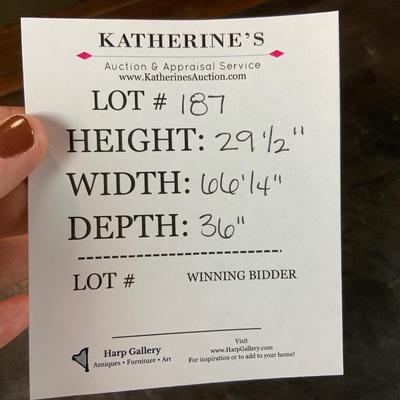 KATHERINE'S
Auction & Appraisal Service
www.KatherinesAuction.com
LOT # 187
HEIGHT: 29 1/2"
WIDTH: 66 1/4"
DEPTH: 36"
LOT # WINNING BIDDER
Harp Gallery
Antiques • Furniture • Art
Visit
www.HarpGallery.com
For inspiration or to add to your home!